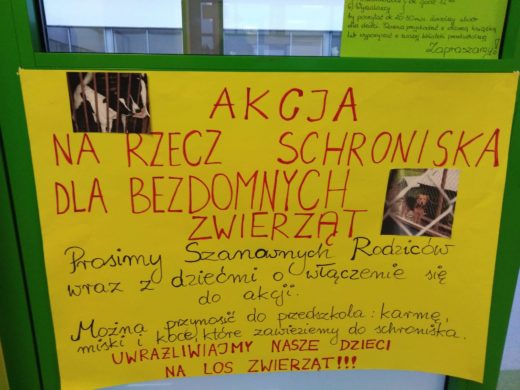 o godz.
6) Wyznaczony
by poczytać ok. 20-30 min. dowolny utwór
dla dzieci. Można przynieść z domu książkę
lub wypożyczyć z naszej biblioteki przedszkolnej.
Zapraszamy!
AKCJA
NA RZECZ SCHRONISKA
DLA BEZDOMNYCH
ZWIERZĄT
Prosimy Szanownych Rodziców
wraz z dziećmi o włączenie się
do akcji.
Można przynosić do przedszkola: karmę,
miski i koce, które zawieziemy do schroniska.
UWRAŻLIWIAJMY NASZE DZIECI
NA LOS ZWIERZĄT!!!